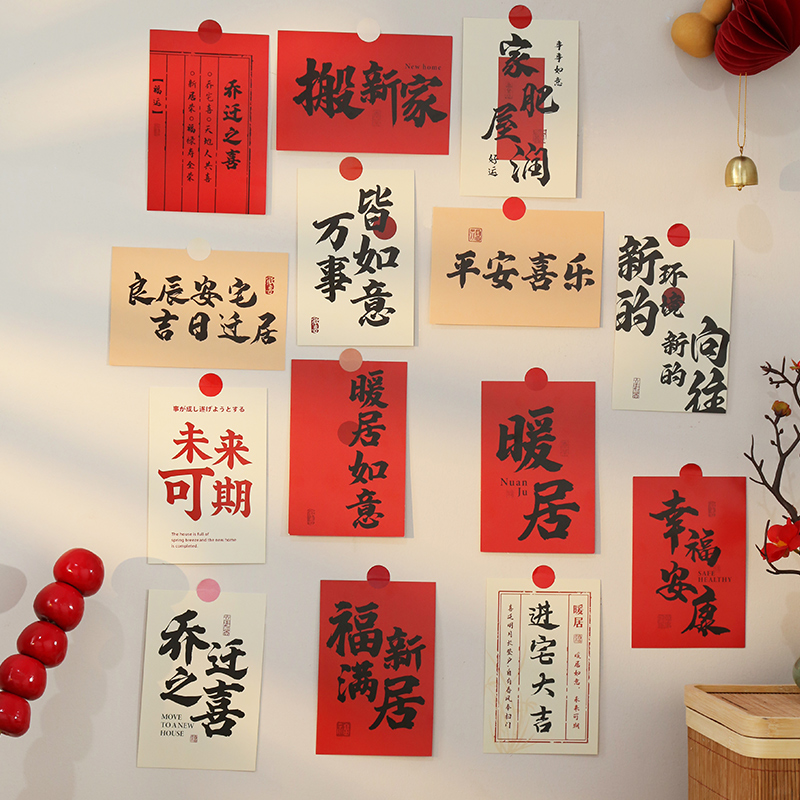 乔迁之喜
○乔宅喜○天地人共喜
○新居荣○福禄寿全荣
【福运】
搬新家
New home
家肥屋润
辛辛如意
好运
皆如意
万事
平安喜乐
新的
环境
新的
向往
良辰安宅
吉日迁居
事が成し遂げようとする
未来
可期
The house is full of
spring breeze and the new home
is completed.
暖居如意
暖居
Nuan
Ju
幸福安康
SAFE
HEALTHY
乔迁
之喜
MOVE
TO A NEW
HOUSE
福满
新居
暖居
暖居如意，未来可期
进宅大吉